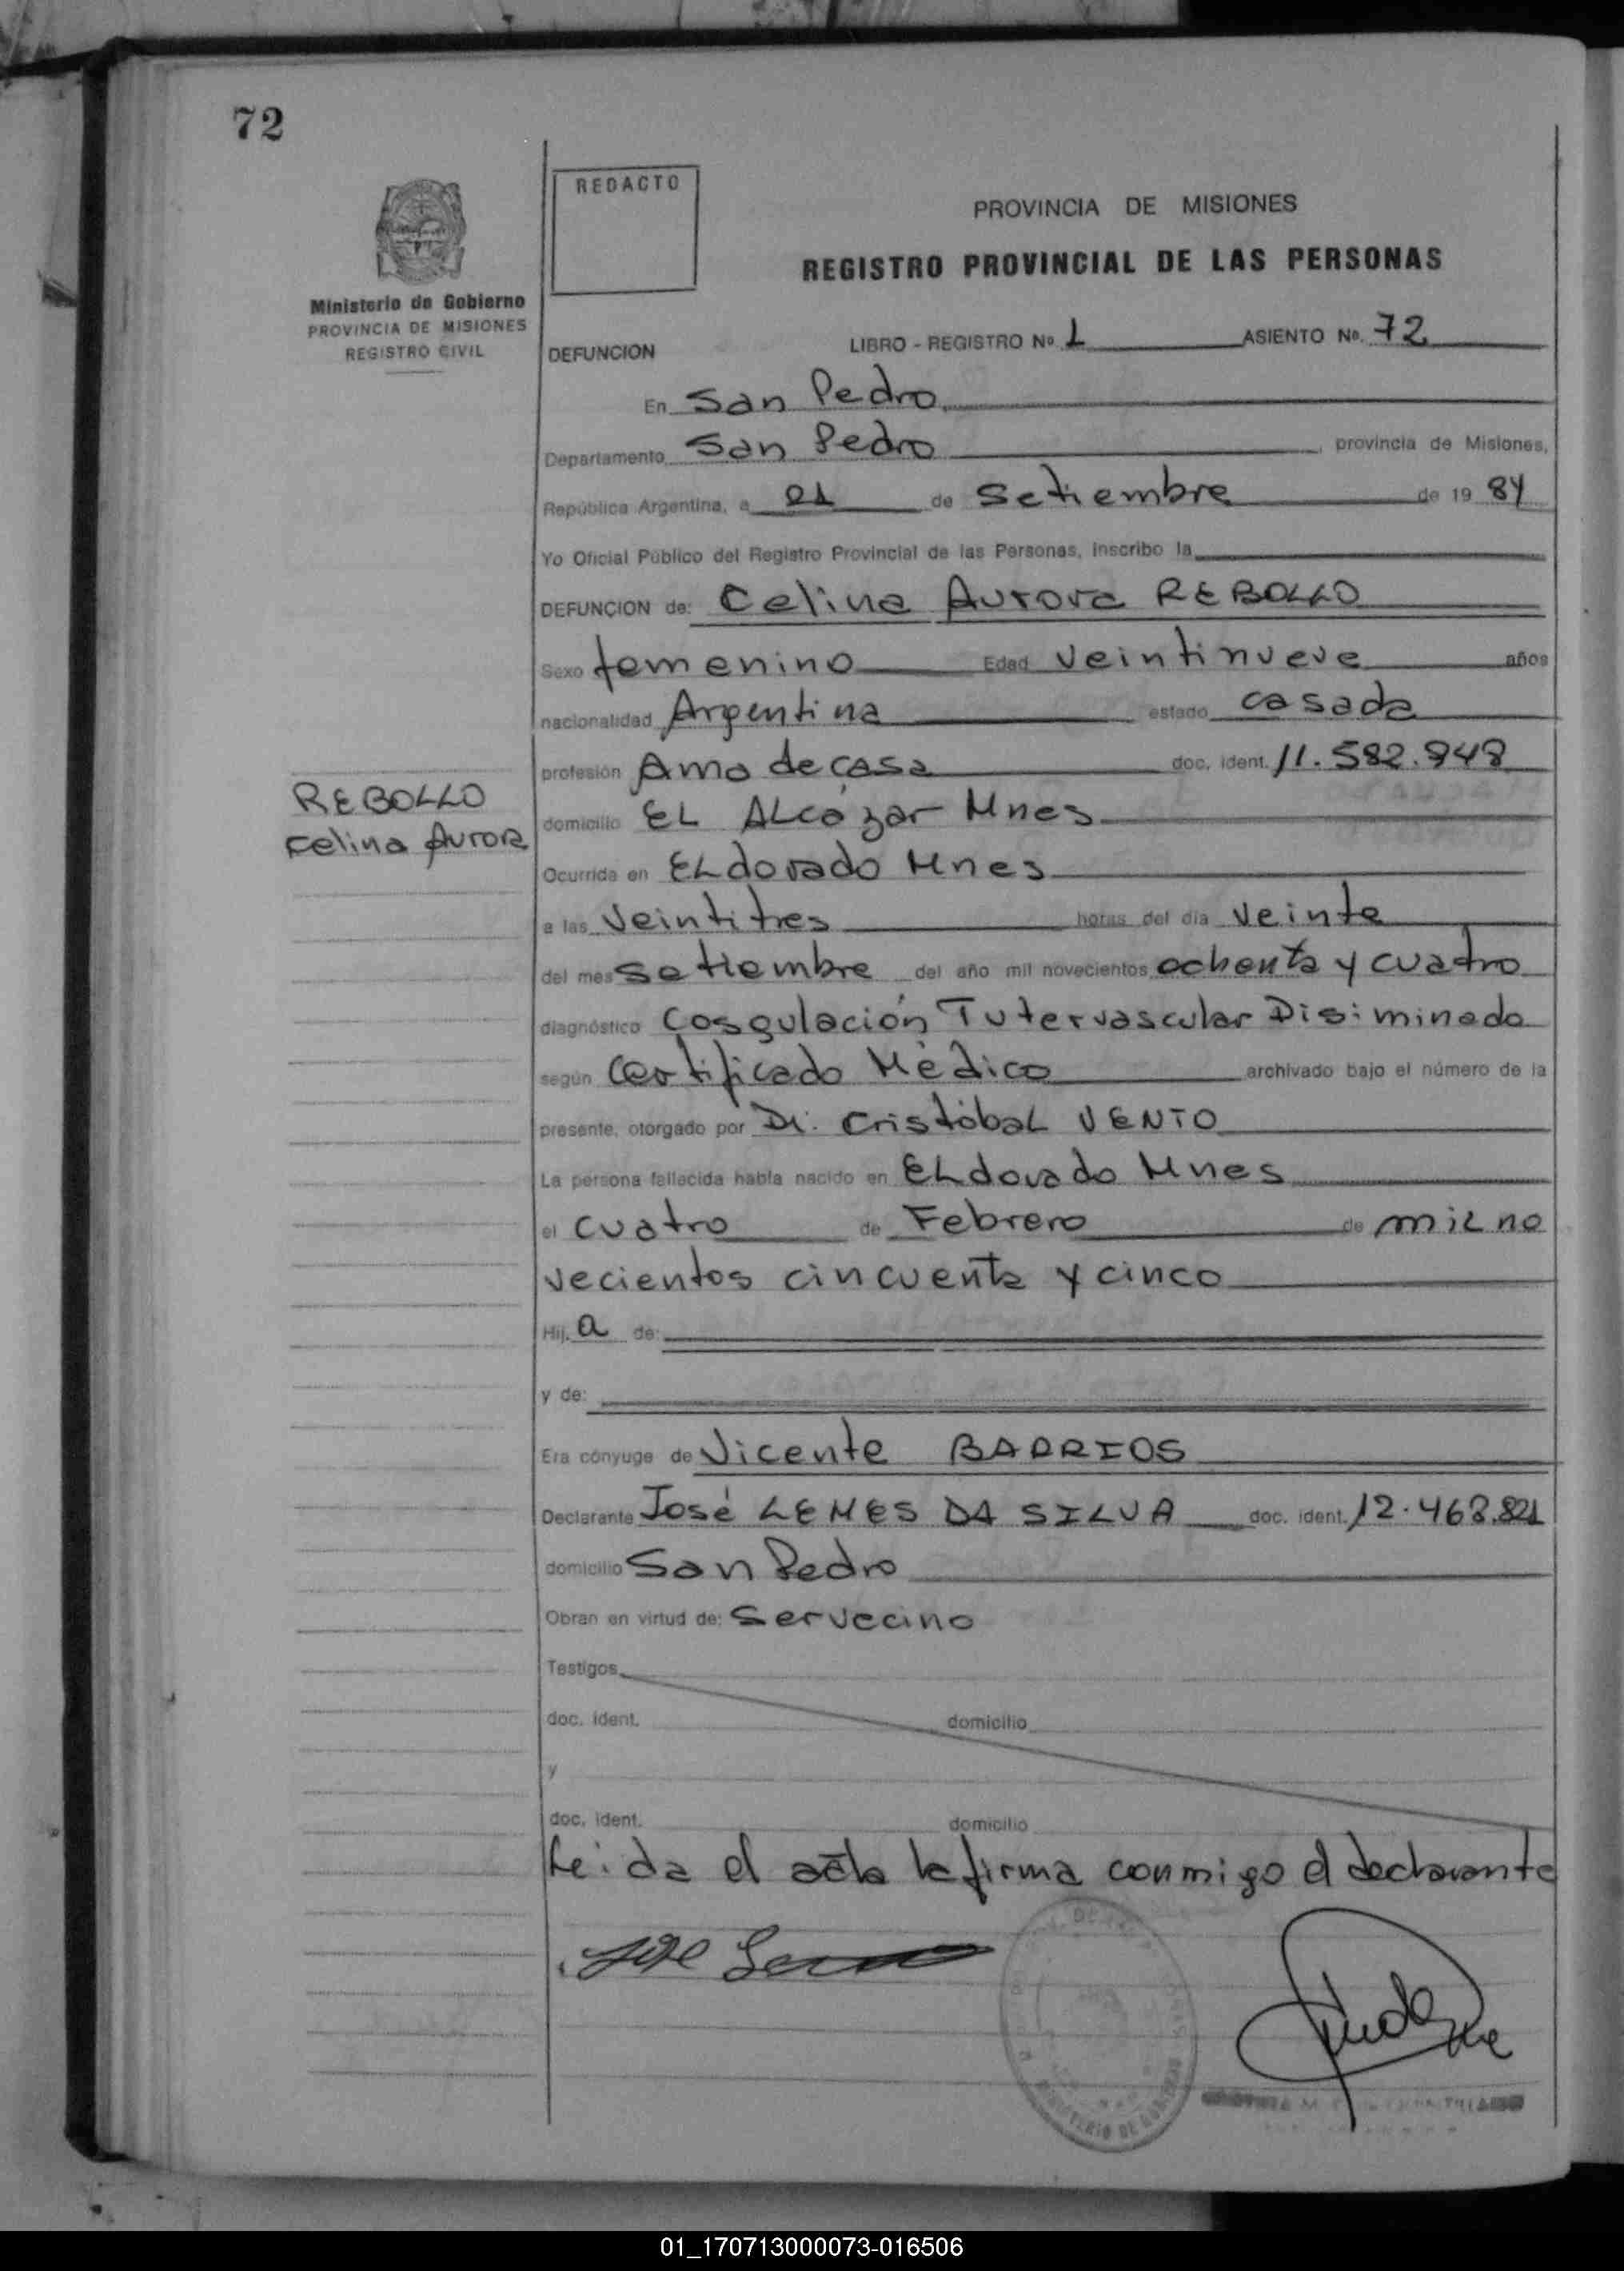 72
REDACTO
PROVINCIA DE MISIONES
REGISTRO PROVINCIAL DE LAS PERSONAS
Ministerio de Gobierno
PROVINCIA DE MISIONES
REGISTRO CIVIL
DEFUNCION LIBRO - REGISTRO Nº 1 ASIENTO Nº. 72
En San Pedro
Departamento San Pedro , provincia de Misiones,
República Argentina, a 21 de Setiembre de 19 84
Yo Oficial Público del Registro Provincial de las Personas, inscribo la
DEFUNCION de: Celina Aurora REBOLLO
Sexo femenino Edad veintinueve años
nacionalidad Argentina estado casada
profesión Ama de casa doc. ident. 11.582.948
REBOLLO
Celina Aurora
domicilio EL ALcázar Mnes
Ocurrida en ELdorado Mnes
a las Veintitres horas del día Veinte
del mes Setiembre del año mil novecientos ochenta y cuatro
diagnóstico Coagulación Intervascular Disiminada
según Certificado Médico archivado bajo el número de la
presente, otorgado por Dr. Cristóbal VENTO
La persona fallecida había nacido en ELdorado Mnes
el cuatro de Febrero de mil no
vecientos cincuenta y cinco
Hij. a de:
y de:
Era cónyuge de Vicente BARRIOS
Declarante José LEMES DA SILVA doc. ident. 12.468.821
domicilio San Pedro
Obran en virtud de: Ser vecino
Testigos
doc. ident. domicilio
y
doc. ident. domicilio
Leida el acta la firma conmigo el declarante
01_170713000073-016506